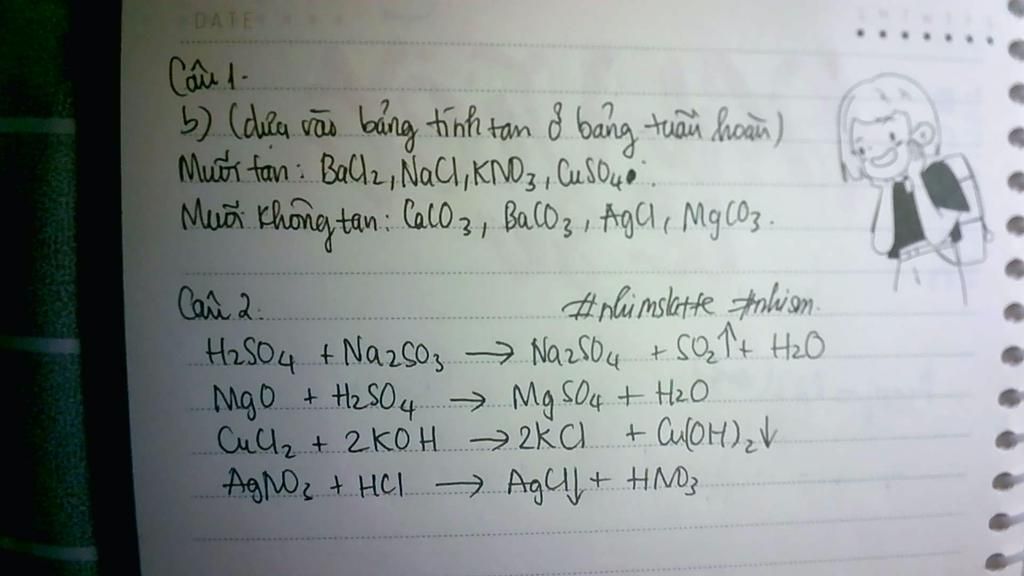 DATE
Câu 1.
b) (dựa vào bảng tính tan ở bảng tuần hoàn)
Muối tan: BaCl2, NaCl, KNO3, CuSO4.
Muối không tan: CaCO3, BaCO3, AgCl, MgCO3.
Câu 2: #nhimslatte #nhism.
H2SO4 + Na2SO3 → Na2SO4 + SO2↑ + H2O
MgO + H2SO4 → MgSO4 + H2O
CuCl2 + 2KOH → 2KCl + Cu(OH)2↓
AgNO3 + HCl → AgCl↓ + HNO3